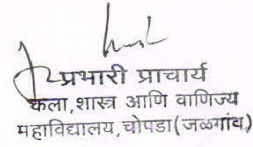 प्रभारी प्राचार्य
कला,शास्त्र आणि वाणिज्य
महाविद्यालय,चोपडा(जळगांव)